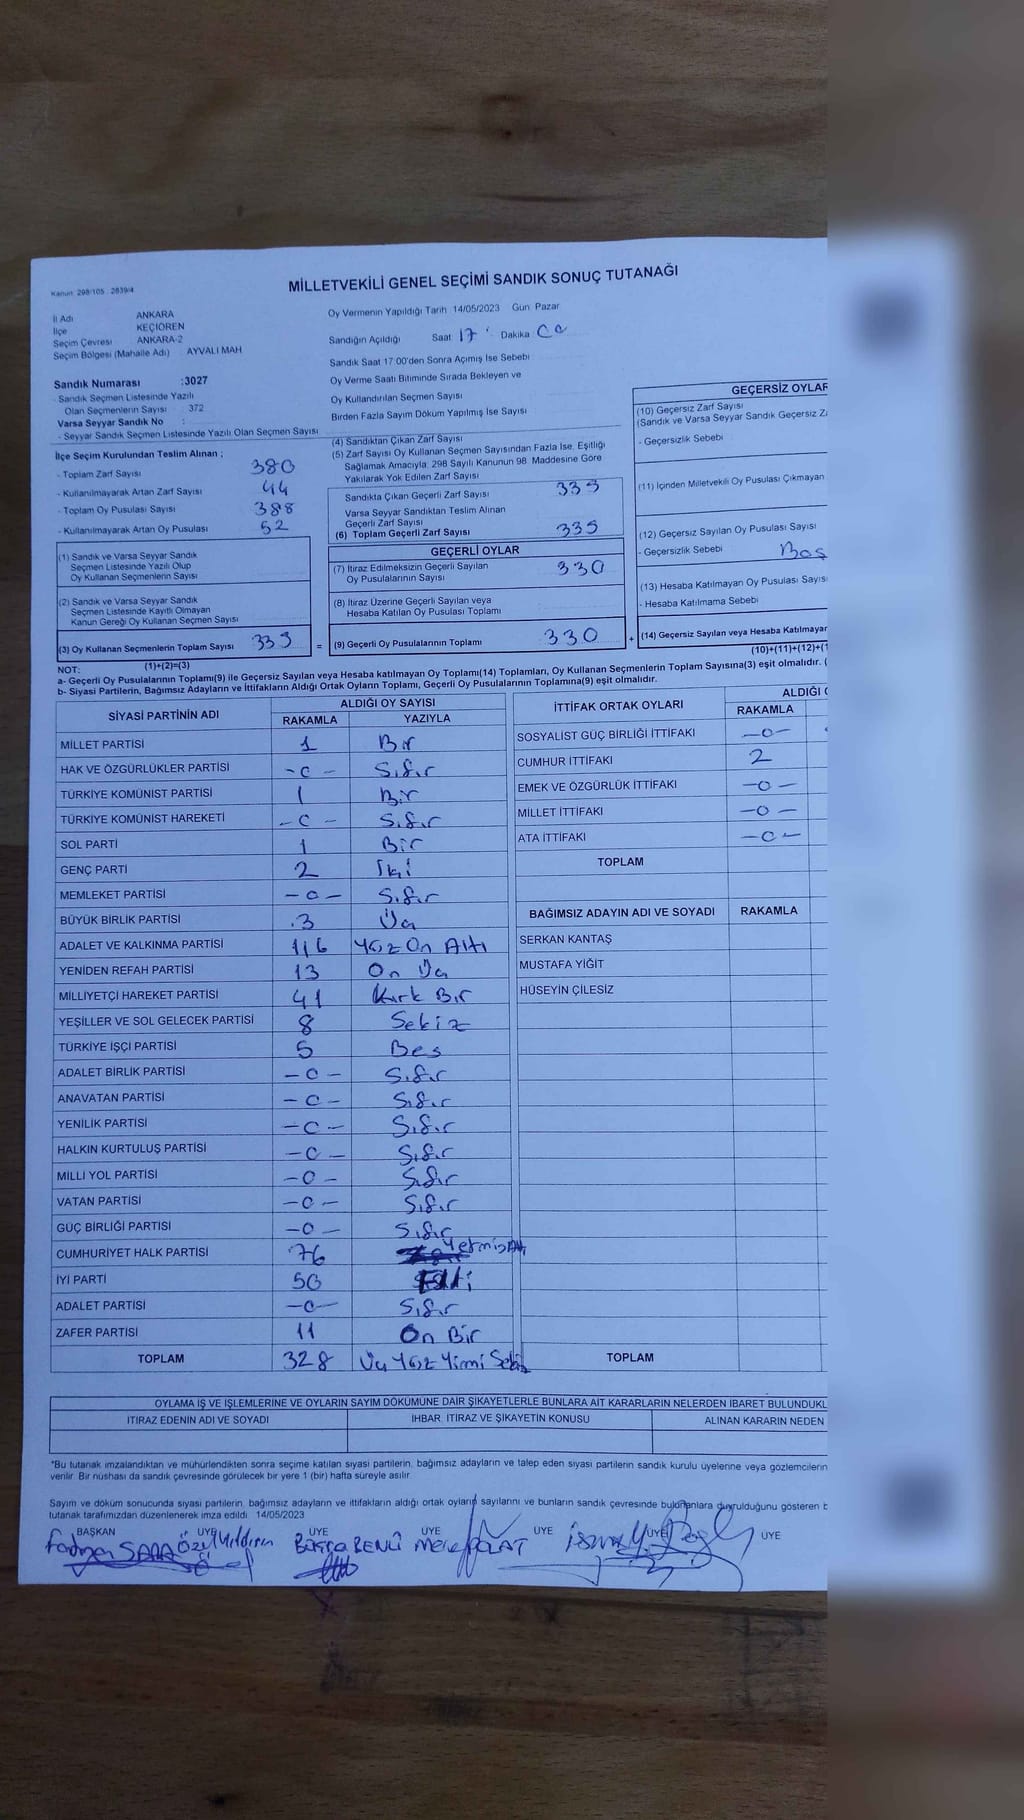 Kanun: 298/105 . 2839/4
MİLLETVEKİLİ GENEL SEÇİMİ SANDIK SONUÇ TUTANAĞI
İl Adı ANKARA
İlçe KEÇİÖREN
Seçim Çevresi ANKARA-2
Seçim Bölgesi (Mahalle Adı) AYVALI MAH
Oy Vermenin Yapıldığı Tarih 14/05/2023 Gün Pazar
Sandığın Açıldığı Saat 17 Dakika 00
Sandık Saat 17:00'den Sonra Açımış İse Sebebi
Oy Verme Saati Bitiminde Sırada Bekleyen ve
Oy Kullandırılan Seçmen Sayısı
Birden Fazla Sayım Döküm Yapılmış İse Sayısı
Sandık Numarası :3027
- Sandık Seçmen Listesinde Yazılı
Olan Seçmenlerin Sayısı : 372
Varsa Seyyar Sandık No :
- Seyyar Sandık Seçmen Listesinde Yazılı Olan Seçmen Sayısı
İlçe Seçim Kurulundan Teslim Alınan ;
- Toplam Zarf Sayısı 380
- Kullanılmayarak Artan Zarf Sayısı 44
- Toplam Oy Pusulası Sayısı 388
- Kullanılmayarak Artan Oy Pusulası 52
(1) Sandık ve Varsa Seyyar Sandık
Seçmen Listesinde Yazılı Olup
Oy Kullanan Seçmenlerin Sayısı
(2) Sandık ve Varsa Seyyar Sandık
Seçmen Listesinde Kayıtlı Olmayan
Kanun Gereği Oy Kullanan Seçmen Sayısı
(3) Oy Kullanan Seçmenlerin Toplam Sayısı 335 =
(1)+(2)=(3)
(4) Sandıktan Çıkan Zarf Sayısı
(5) Zarf Sayısı Oy Kullanan Seçmen Sayısından Fazla İse, Eşitliği
Sağlamak Amacıyla; 298 Sayılı Kanunun 98. Maddesine Göre
Yakılarak Yok Edilen Zarf Sayısı
Sandıkta Çıkan Geçerli Zarf Sayısı 335
Varsa Seyyar Sandıktan Teslim Alınan
Geçerli Zarf Sayısı
(6) Toplam Geçerli Zarf Sayısı 335
GEÇERLİ OYLAR
(7) İtiraz Edilmeksizin Geçerli Sayılan
Oy Pusulalarının Sayısı 330
(8) İtiraz Üzerine Geçerli Sayılan veya
Hesaba Katılan Oy Pusulası Toplamı
(9) Geçerli Oy Pusulalarının Toplamı 330 +
GEÇERSİZ OYLAR
(10) Geçersiz Zarf Sayısı
(Sandık ve Varsa Seyyar Sandık Geçersiz
- Geçersizlik Sebebi
(11) İçinden Milletvekili Oy Pusulası Çıkmayan
(12) Geçersiz Sayılan Oy Pusulası Sayısı
- Geçersizlik Sebebi Boş
(13) Hesaba Katılmayan Oy Pusulası
- Hesaba Katılmama Sebebi
(14) Geçersiz Sayılan veya Hesaba
(10)+(11)+(12)+(1
NOT:
a- Geçerli Oy Pusulalarının Toplamı(9) ile Geçersiz Sayılan veya Hesaba katılmayan Oy Toplamı(14) Toplamları, Oy Kullanan Seçmenlerin Toplam Sayısına(3) eşit olmalıdır. (
b- Siyasi Partilerin, Bağımsız Adayların ve İttifakların Aldığı Ortak Oyların Toplamı, Geçerli Oy Pusulalarının Toplamına(9) eşit olmalıdır.
SİYASİ PARTİNİN ADI ALDIĞI OY SAYISI
RAKAMLA YAZIYLA
MİLLET PARTİSİ 1 Bir
HAK VE ÖZGÜRLÜKLER PARTİSİ -0- Sıfır
TÜRKİYE KOMÜNİST PARTİSİ 1 Bir
TÜRKİYE KOMÜNİST HAREKETİ -0- Sıfır
SOL PARTİ 1 Bir
GENÇ PARTİ 2 İki
MEMLEKET PARTİSİ -0- Sıfır
BÜYÜK BİRLİK PARTİSİ 3 Üç
ADALET VE KALKINMA PARTİSİ 116 Yüz On Altı
YENİDEN REFAH PARTİSİ 13 On Üç
MİLLİYETÇİ HAREKET PARTİSİ 41 Kırk Bir
YEŞİLLER VE SOL GELECEK PARTİSİ 8 Sekiz
TÜRKİYE İŞÇİ PARTİSİ 5 Beş
ADALET BİRLİK PARTİSİ -0- Sıfır
ANAVATAN PARTİSİ -0- Sıfır
YENİLİK PARTİSİ -0- Sıfır
HALKIN KURTULUŞ PARTİSİ -0- Sıfır
MİLLİ YOL PARTİSİ -0- Sıfır
VATAN PARTİSİ -0- Sıfır
GÜÇ BİRLİĞİ PARTİSİ -0- Sıfır
CUMHURİYET HALK PARTİSİ 76 Yetmiş Altı
İYİ PARTİ 50 Elli
ADALET PARTİSİ -0- Sıfır
ZAFER PARTİSİ 11 On Bir
TOPLAM 328 Üç Yüz Yirmi Sekiz
İTTİFAK ORTAK OYLARI ALDIĞI
RAKAMLA
SOSYALİST GÜÇ BİRLİĞİ İTTİFAKI -0-
CUMHUR İTTİFAKI 2
EMEK VE ÖZGÜRLÜK İTTİFAKI -0-
MİLLET İTTİFAKI -0-
ATA İTTİFAKI -0-
TOPLAM
BAĞIMSIZ ADAYIN ADI VE SOYADI RAKAMLA
SERKAN KANTAŞ
MUSTAFA YİĞİT
HÜSEYİN ÇİLESİZ
TOPLAM
OYLAMA İŞ VE İŞLEMLERİNE VE OYLARIN SAYIM DÖKÜMÜNE DAİR ŞİKAYETLERLE BUNLARA AİT KARARLARIN NELERDEN İBARET BULUNDUKL
İTİRAZ EDENİN ADI VE SOYADI İHBAR, İTİRAZ VE ŞİKAYETİN KONUSU ALINAN KARARIN NEDEN
*Bu tutanak imzalandıktan ve mühürlendikten sonra seçime katılan siyasi partilerin, bağımsız adayların ve talep eden siyasi partilerin sandık kurulu üyelerine veya gözlemcilerin
verilir. Bir nüshası da sandık çevresinde görülecek bir yere 1 (bir) hafta süreyle asılır.
Sayım ve döküm sonucunda siyasi partilerin, bağımsız adayların ve ittifakların aldığı ortak oyların sayılarını ve bunların sandık çevresinde bulunanlara duyrulduğunu gösteren
tutanak tarafımızdan düzenlenerek imza edildi. 14/05/2023
BAŞKAN ÜYE ÜYE ÜYE ÜYE ÜYE ÜYE
Özgül Yıldırım BÜŞRA BENLİ